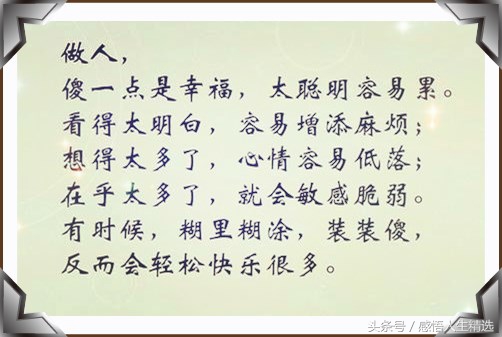 做人，
傻一点是幸福，太聪明容易累。
看得太明白，容易增添麻烦；
想得太多了，心情容易低落；
在乎太多了，就会敏感脆弱。
有时候，糊里糊涂，装装傻，
反而会轻松快乐很多。
头条号/感悟人生精选